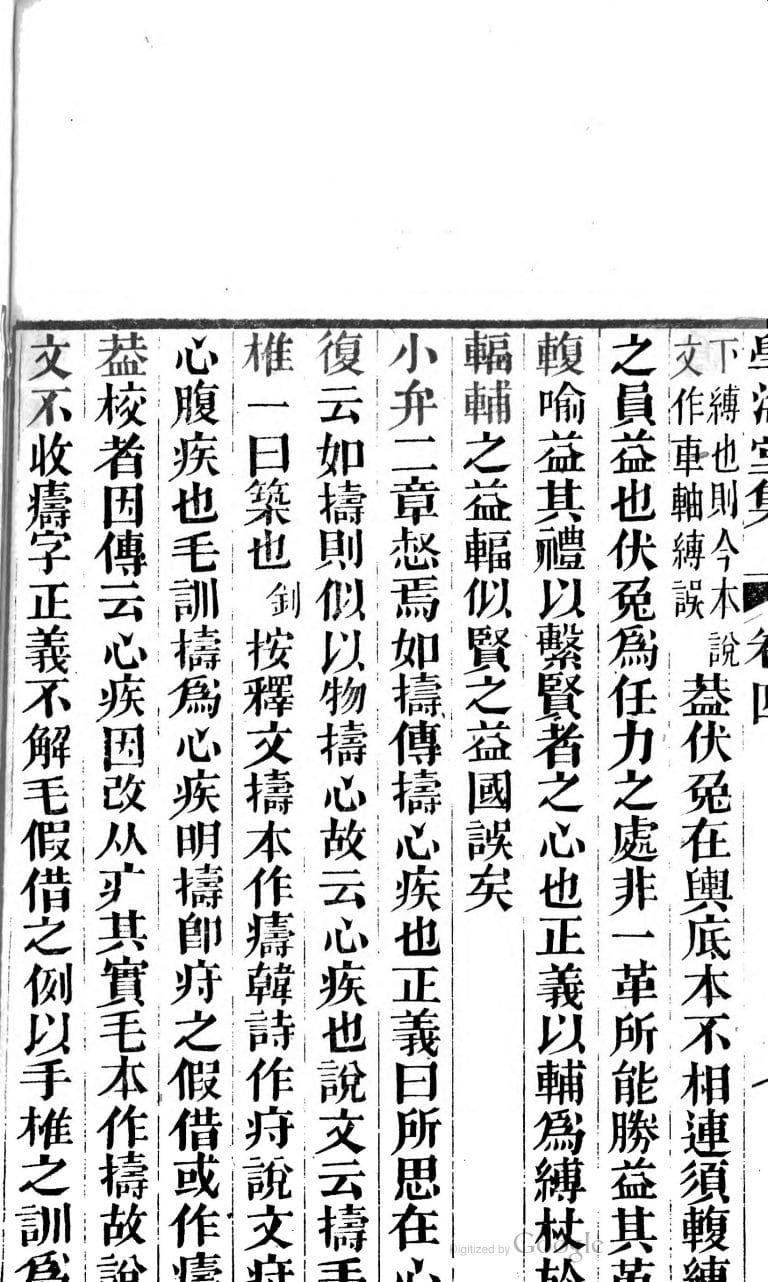 學海堂集 卷四
下縛也則今本說
文作車軸縛誤
葢伏兔在輿底本不相連須輹縛
之員益也伏兔爲任力之處非一革所能勝益其革
輹喻益其禮以繫賢者之心也正義以輔爲縛杖於
輻輔之益輻似賢之益國誤矣
小弁二章惄焉如擣傳擣心疾也正義曰所思在心
復云如擣則似以物擣心故云心疾也說文云擣手
椎一曰築也 釗按釋文擣本作㿒韓詩作疛說文疛
心腹疾也毛訓擣爲心疾明擣卽疛之假借或作㿒
葢校者因傳云心疾因改从疒其實毛本作擣故說
文不收㿒字正義不解毛假借之例以手椎之訓爲
Digitized by Google